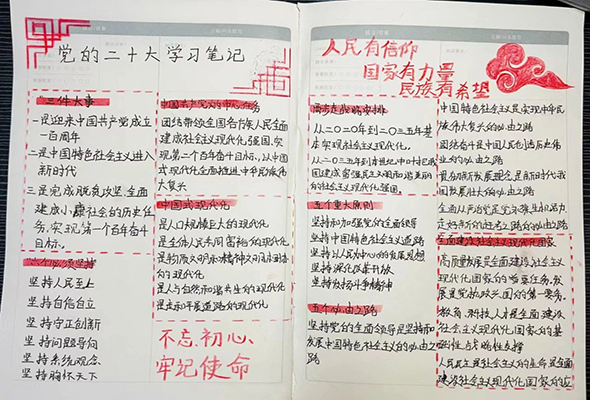 党的二十大学习笔记
三件大事
一是迎来中国共产党成立
一百周年
二是中国特色社会主义进入
新时代
三是完成脱贫攻坚、全面
建成小康社会的历史任
务,实现第一个百年奋斗
目标。
六个必须坚持
坚持人民至上
坚持自信自立
坚持守正创新
坚持问题导向
坚持系统观念
坚持胸怀天下
中国共产党的中心任务
团结带领全国各族人民全面
建成社会主义现代化强国、实
现第二个百年奋斗目标,以中国
式现代化全面推进中华民族伟
大复兴
中国式现代化
是人口规模巨大的现代化
是全体人民共同富裕的现代化
是物质文明和精神文明相协调
的现代化
是人与自然和谐共生的现代化
是走和平发展道路的现代化
不忘初心、
牢记使命
人民有信仰
国家有力量
民族有希望
两步走战略安排
从二〇二〇年到二〇三五年基
本实现社会主义现代化。
从二〇三五年到本世纪中叶把我国
建成富强民主文明和谐美丽的
社会主义现代化强国。
五个重大原则
坚持和加强党的全面领导
坚持中国特色社会主义道路
坚持以人民为中心的发展思想
坚持深化改革开放
坚持发扬斗争精神
五个必由之路
坚持党的全面领导是坚持和
发展中国特色社会主义的必由之
路
中国特色社会主义是实现中华民
族伟大复兴的必由之路
团结奋斗是中国人民创造历史伟
业的必由之路
贯彻新发展理念是新时代我
国发展壮大的必由之路
全面从严治党是党永葆生机活力、
走好新的赶考之路的必由之路
全面建设社会主义现代化国家
高质量发展是全面建设社会主
义现代化国家的首要任务。发
展是党执政兴国的第一要务。
教育、科技、人才是全面建设社
会主义现代化国家的基
础性、战略性支撑
人民民主是社会主义的生命,是全面
建设社会主义现代化国家的应